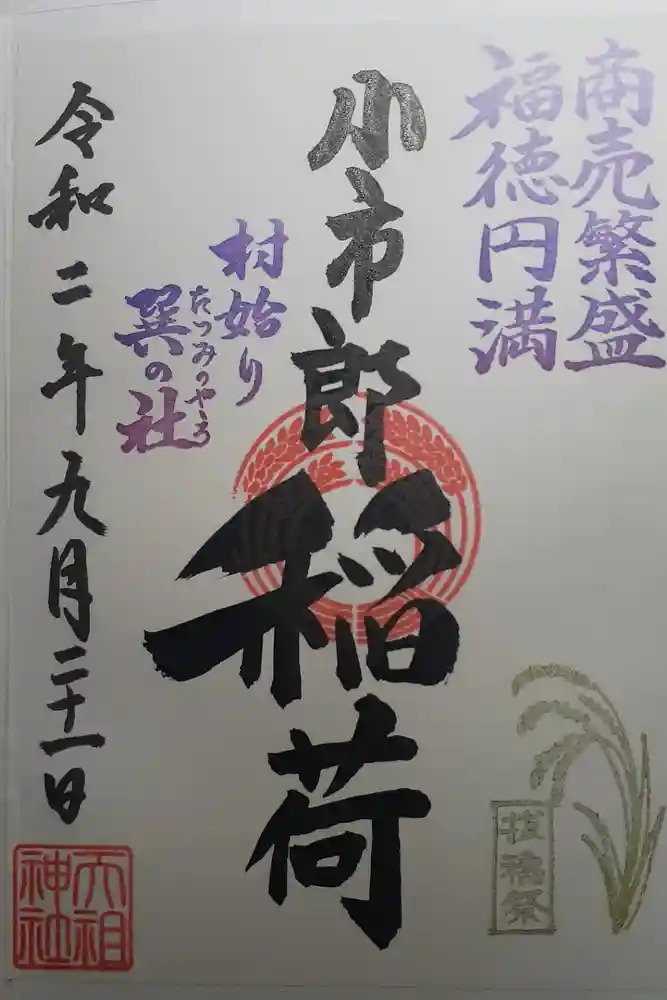 商売繁盛
福徳円満
抜穂祭
小市郎稲荷
村始り
たつみのやしろ
巽の社
令和二年九月二十一日
天祖
神社